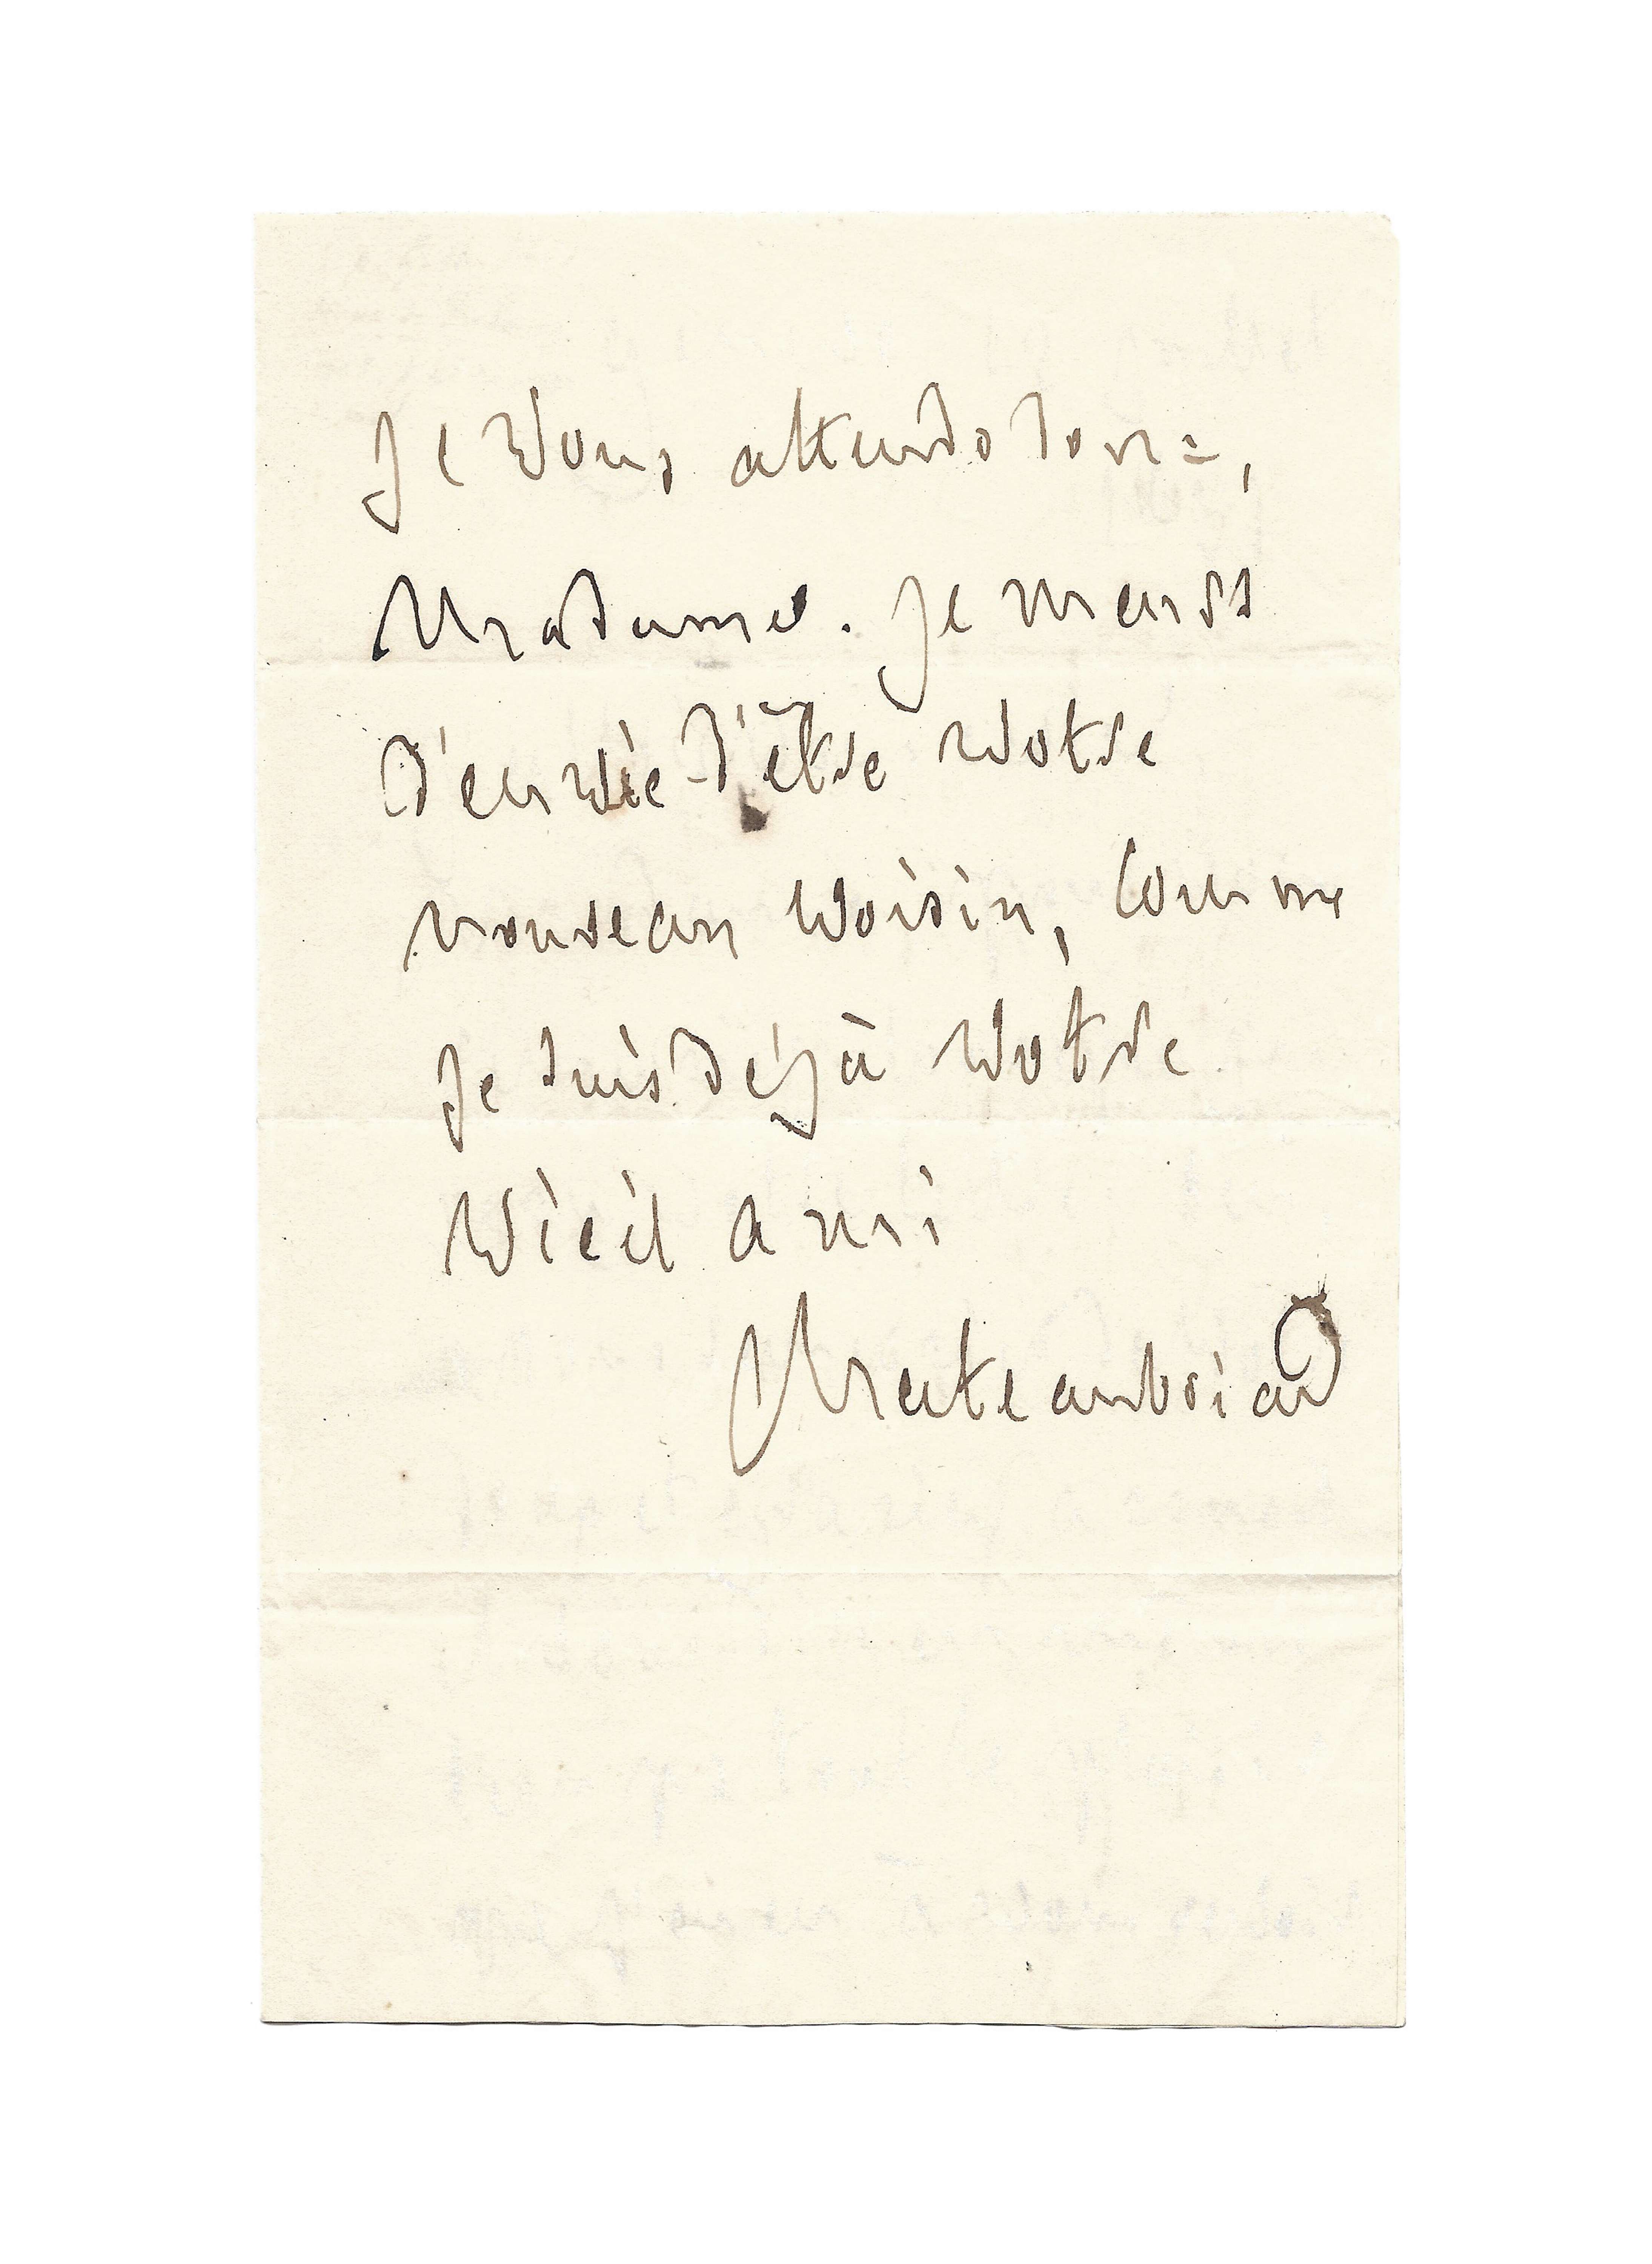 Je vous attends donc,
Madame. Je meurs
d'envie d'être votre
nouveau voisin, comme
je suis déjà votre
vieil ami
Chateaubriand